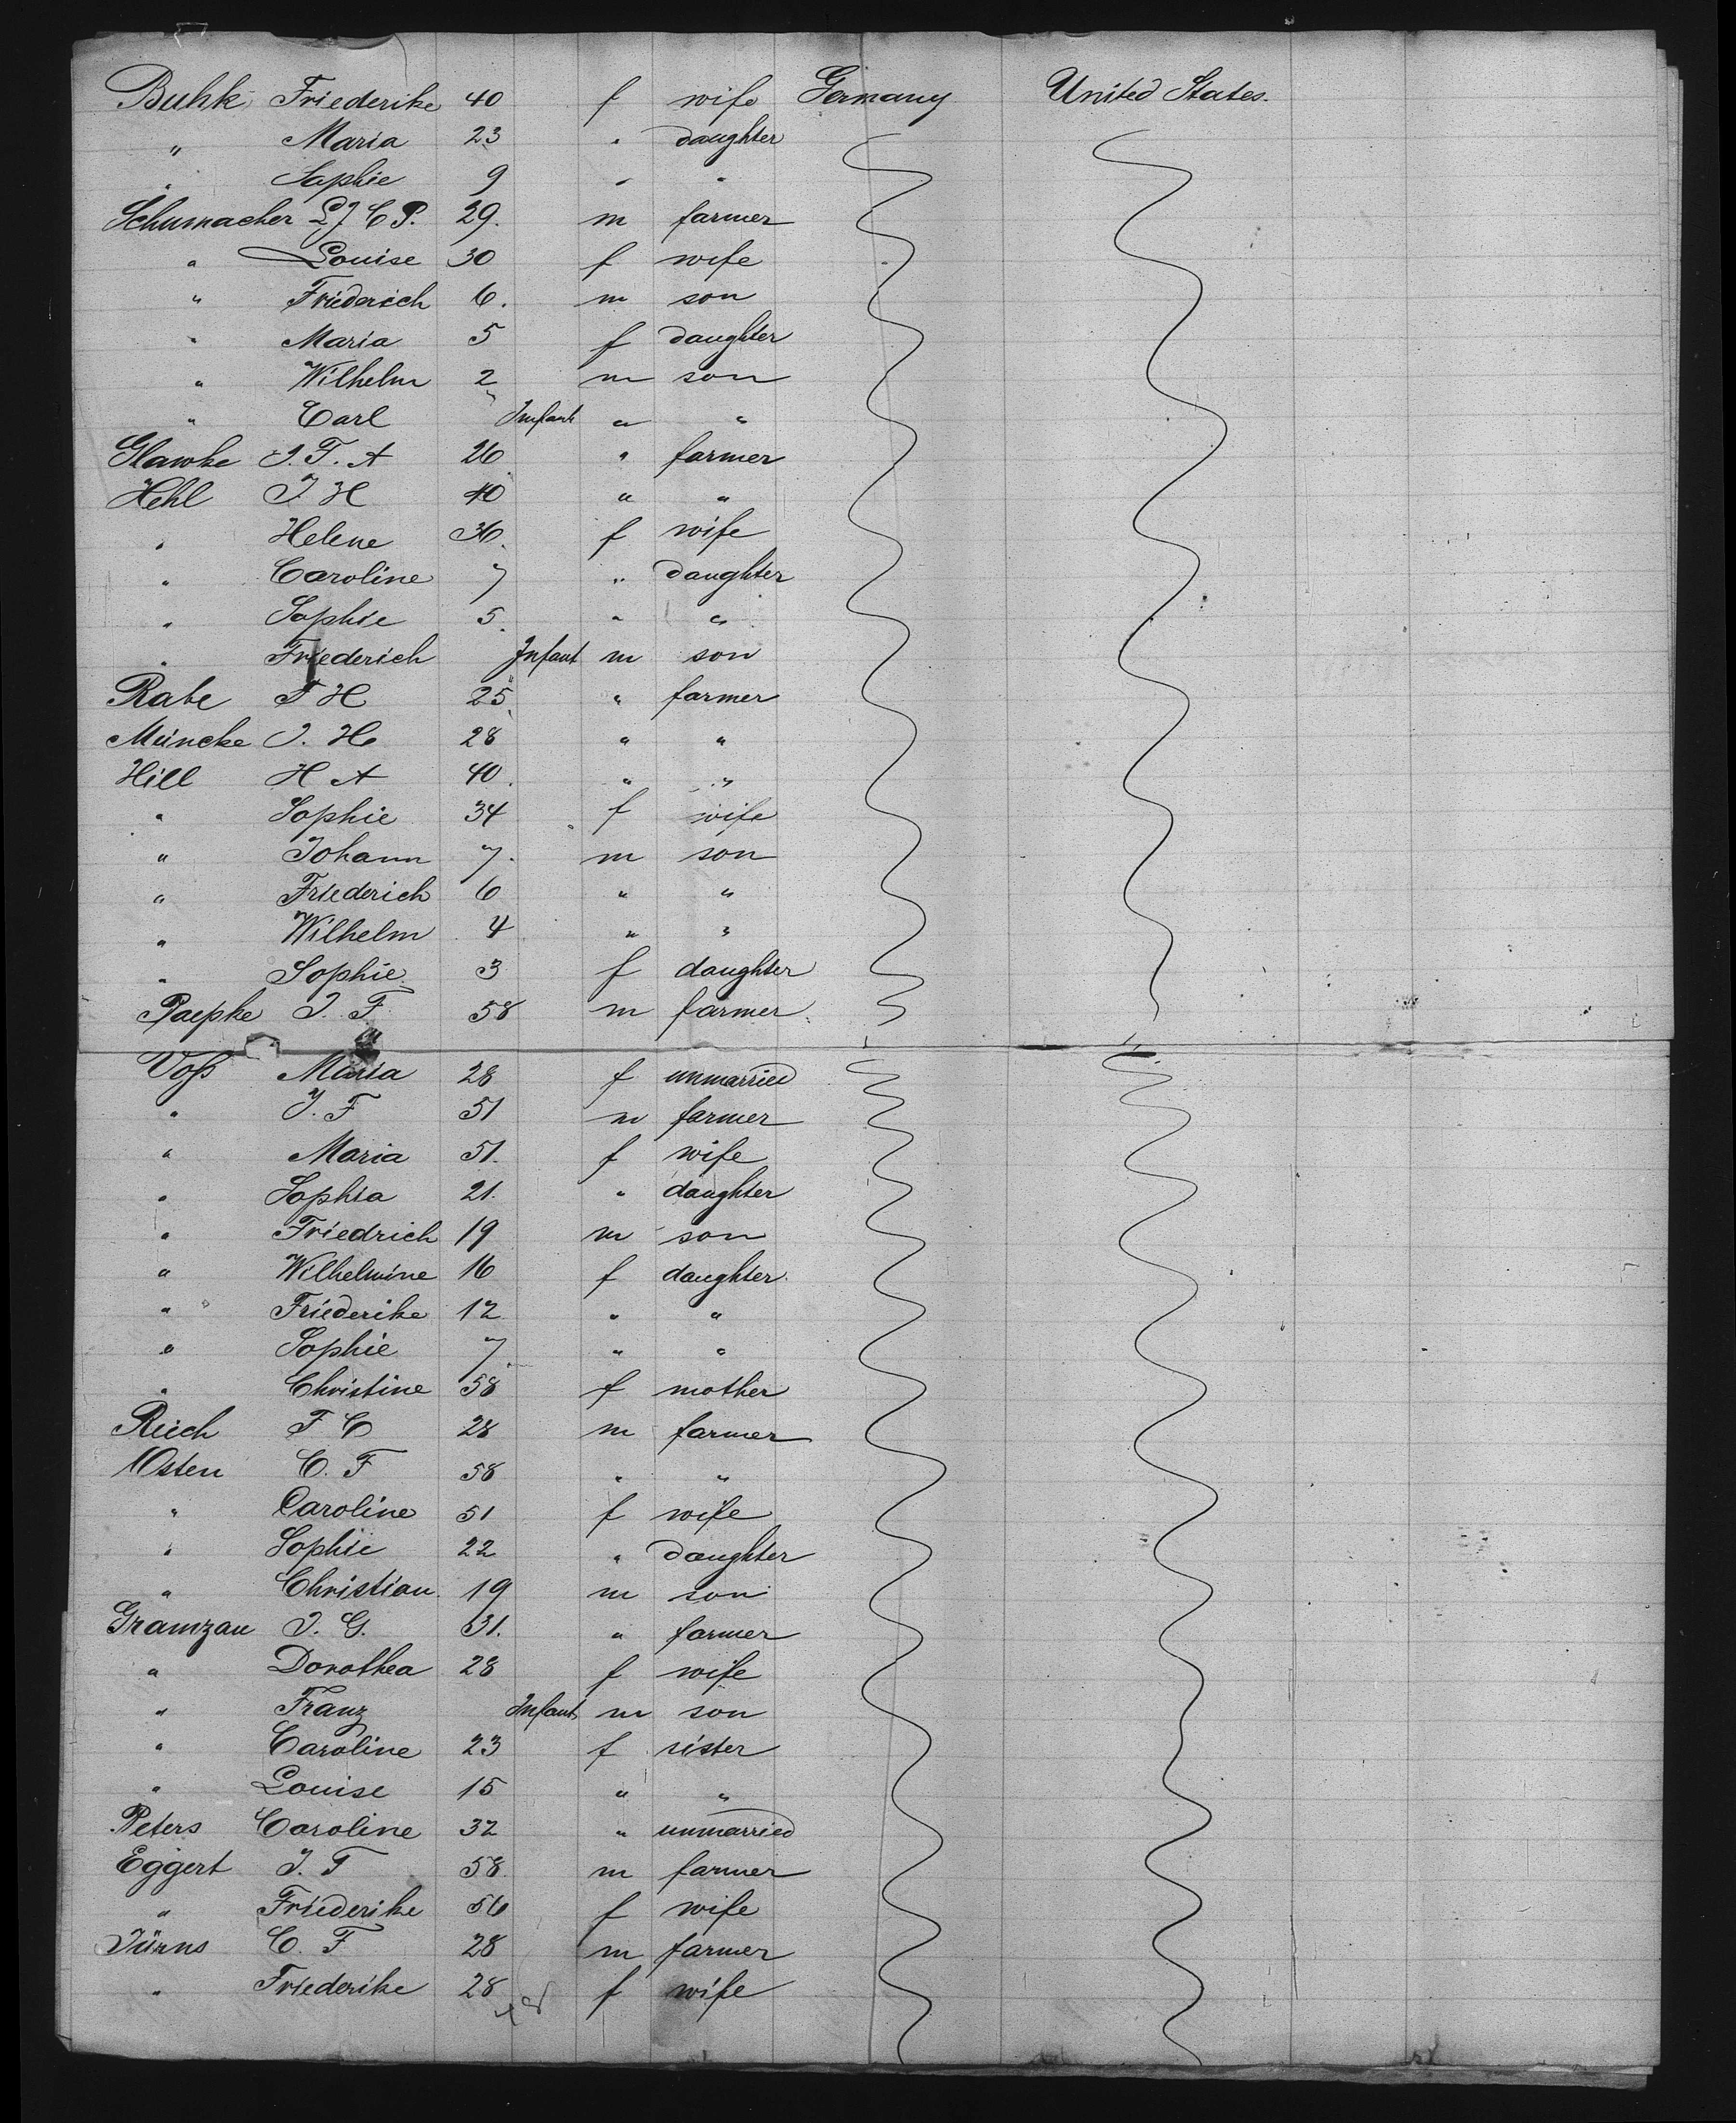 Buhk Friederike 40 f wife Germany United States.
" Maria 23 " daughter
" Sophie 9 " "
Schumacher L J C P. 29. m farmer
" Louise 30 f wife
" Friederich 6. m son
" Maria 5 f daughter
" Wilhelm 2 m son
" Carl Infant " "
Glawke J. F. A 26 " farmer
Hehl J. H 40 " "
" Helene 36. f wife
" Caroline 7 " daughter
" Sophie 5. " "
" Friederich Infant m son
Rabe F H 25 " farmer
Müncke J. H. 28 " "
Hill H A 40. " "
" Sophie 34 f wife
" Johann 7. m son
" Friederich 6 " "
" Wilhelm 4 " "
" Sophie 3 f daughter
Paepke J. F 58 m farmer
Voß Maria 28 f unmarried
" J. F 51 m farmer
" Maria 51. f wife
" Sophia 21. " daughter
" Friedrich 19 m son
" Wilhelmine 16 f daughter
" Friederike 12 " "
" Sophie 7 " "
" Christine 58 f mother
Rüch F C 28 m farmer
Osten C. F 58 " "
" Caroline 51 f wife
" Sophie 22 " daughter
" Christian 19 m son
Gramzau J. G. 31. " farmer
" Dorothea 28 f wife
" Franz Infant m son
" Caroline 23 f sister
" Louise 15 " "
Peters Caroline 32 " unmarried
Eggert J. F 58. m farmer
" Friederike 56 f wife
Jürns C. F 28 m farmer
" Friederike 28 f wife